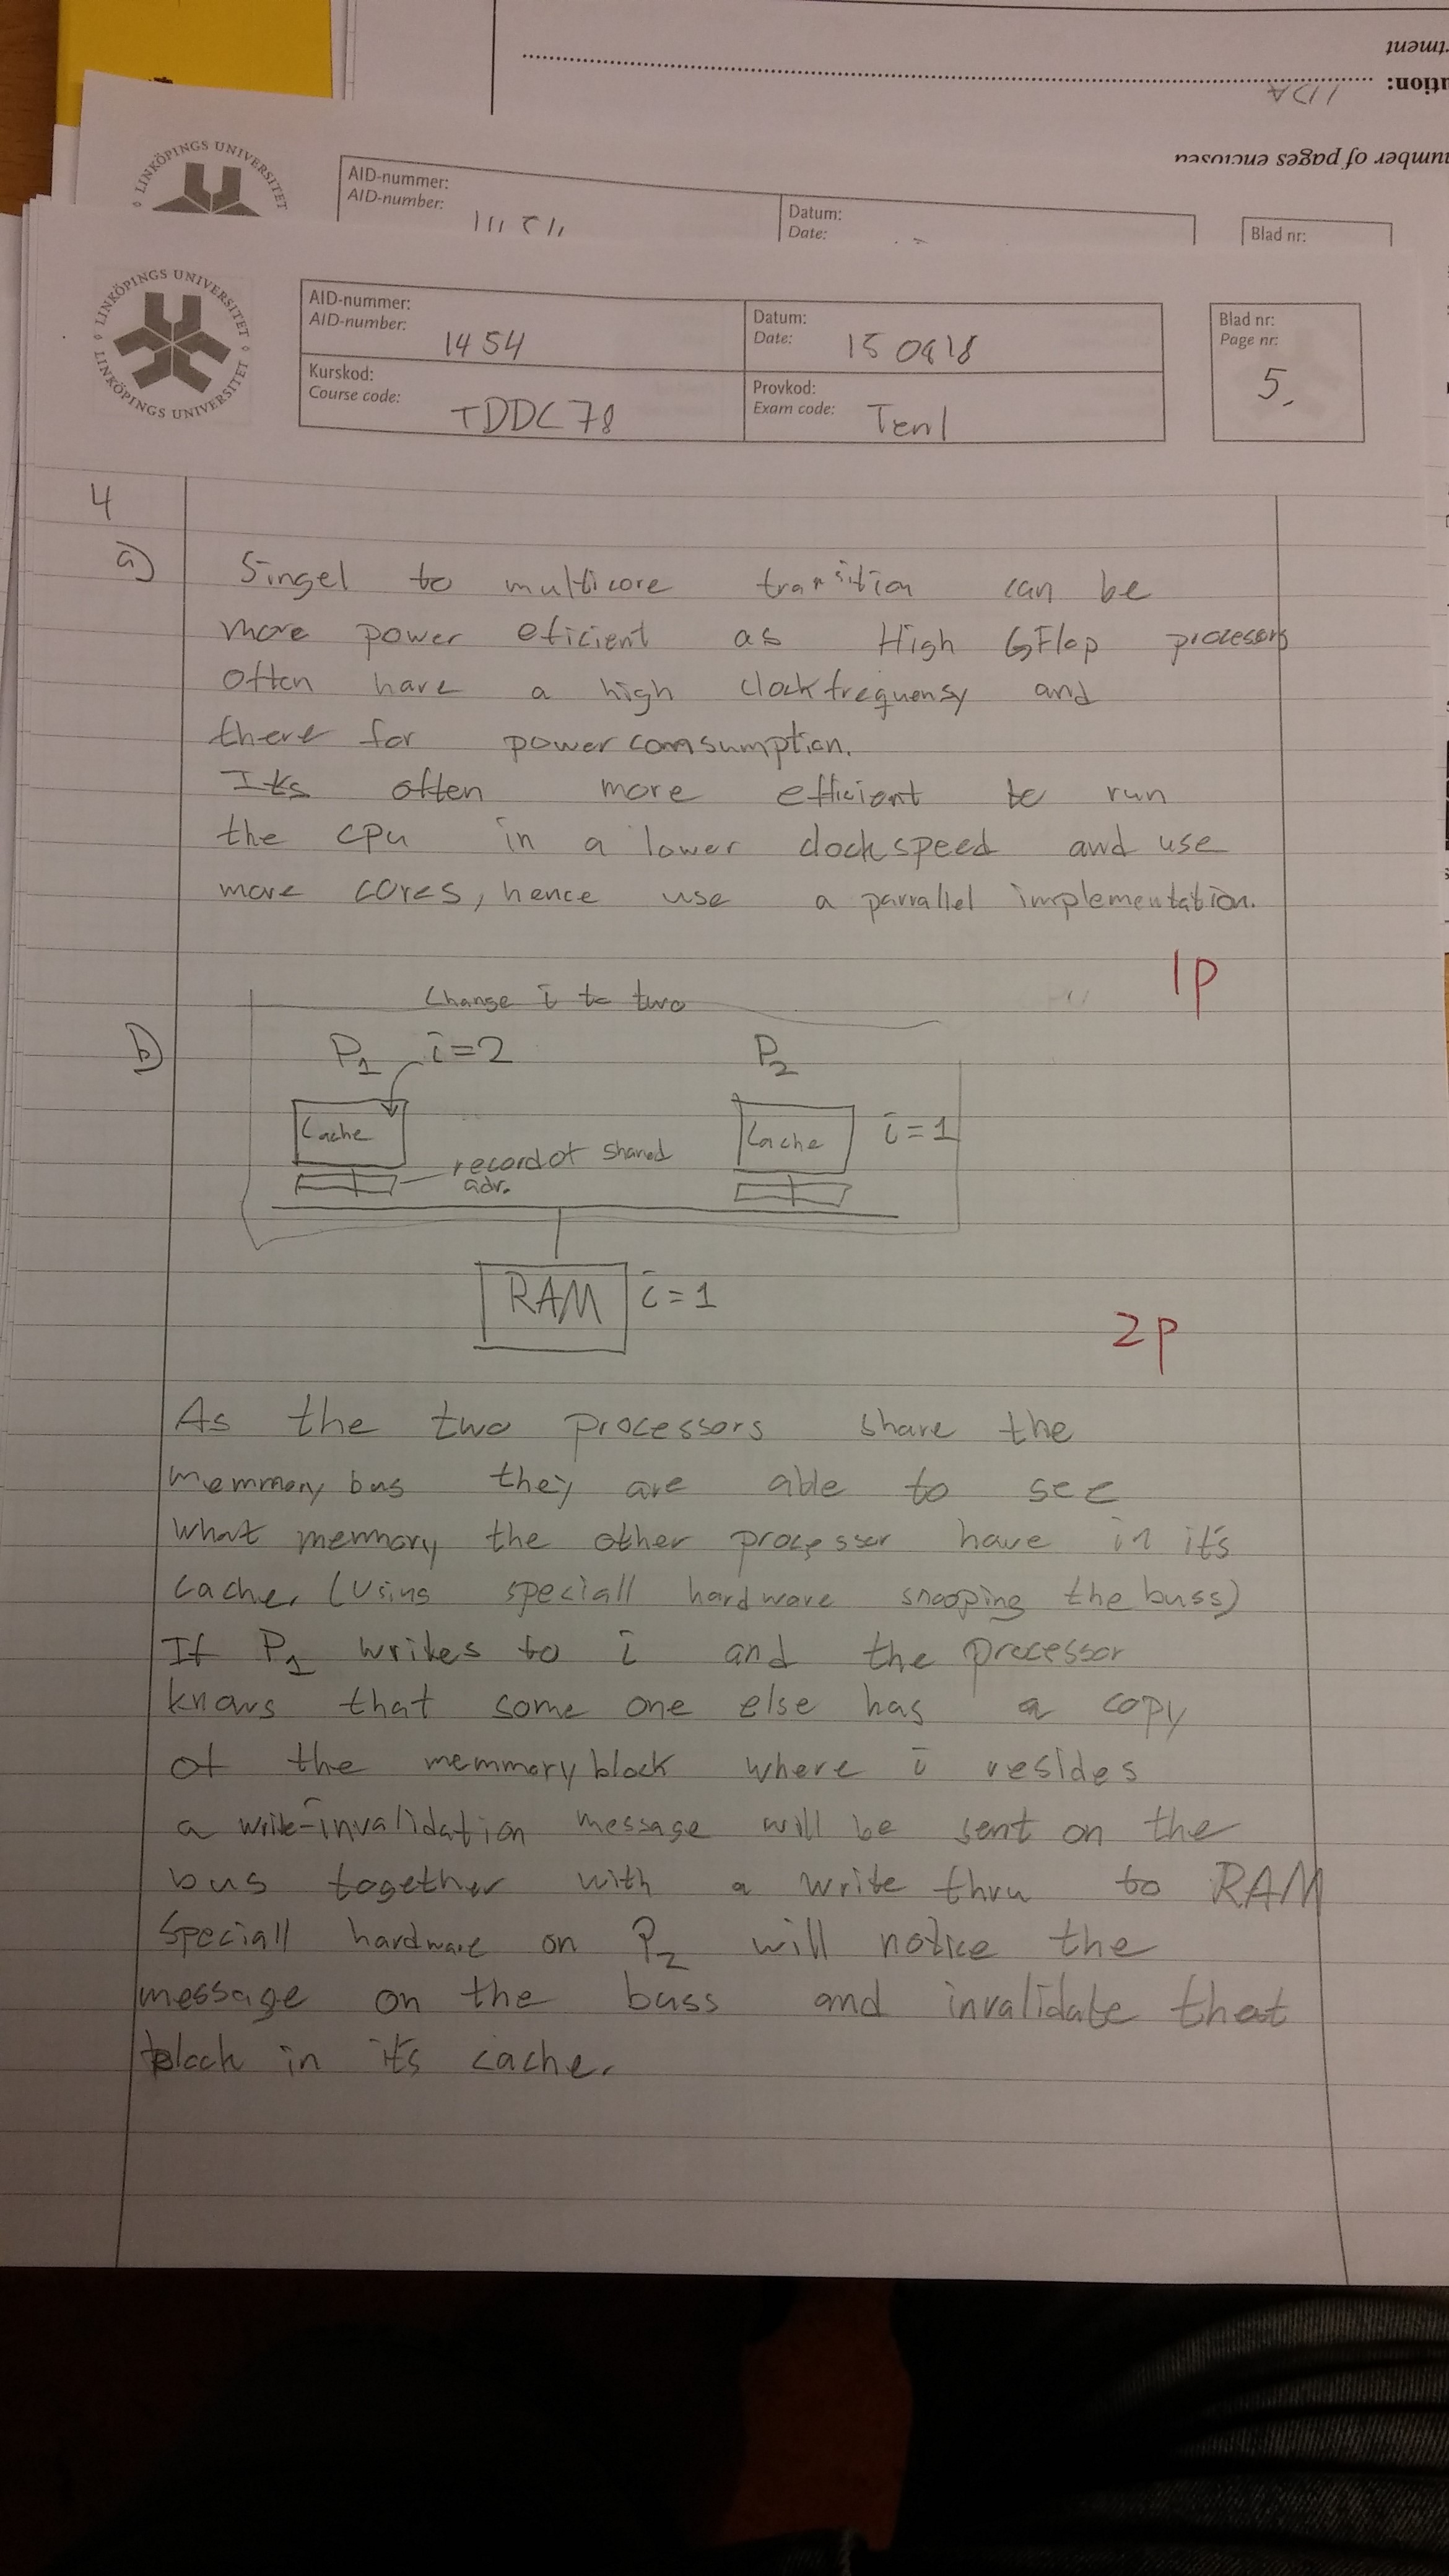 tment
ution:
IDA
number of pages enclosed
LINKÖPINGS UNIVERSITET
AID-nummer:
AID-number:
Datum:
Date:
Blad nr:
LINKÖPINGS UNIVERSITET
LINKÖPINGS UNIVERSITET
AID-nummer:
AID-number:
1454
Datum:
Date:
150918
Blad nr:
Page nr:
5.
Kurskod:
Course code:
TDDC78
Provkod:
Exam code:
Ten1
4
a)
Singel to multicore transition can be
more power eficient as High GFlop procesors
often have a high clockfrequensy and
there for power comsumption.
Its often more efficient to run
the cpu in a lower clockspeed and use
more cores, hence use a parrallel implementation.
1p
Change i to two
b)
P1 i=2
P2
Cache
Cache
i=1
record of shared
adr.
RAM
i=1
2p
As the two processors share the
memmory bus they are able to see
what memmory the other processor have in it's
cache. (Using speciall hardware snooping the buss)
If P1 writes to i and the processor
knows that some one else has a copy
of the memmoryblock where i resides
a write-invalidation message will be sent on the
bus together with a write thru to RAM
Speciall hardware on P2 will notice the
message on the buss and invalidate that
block in it's cache.